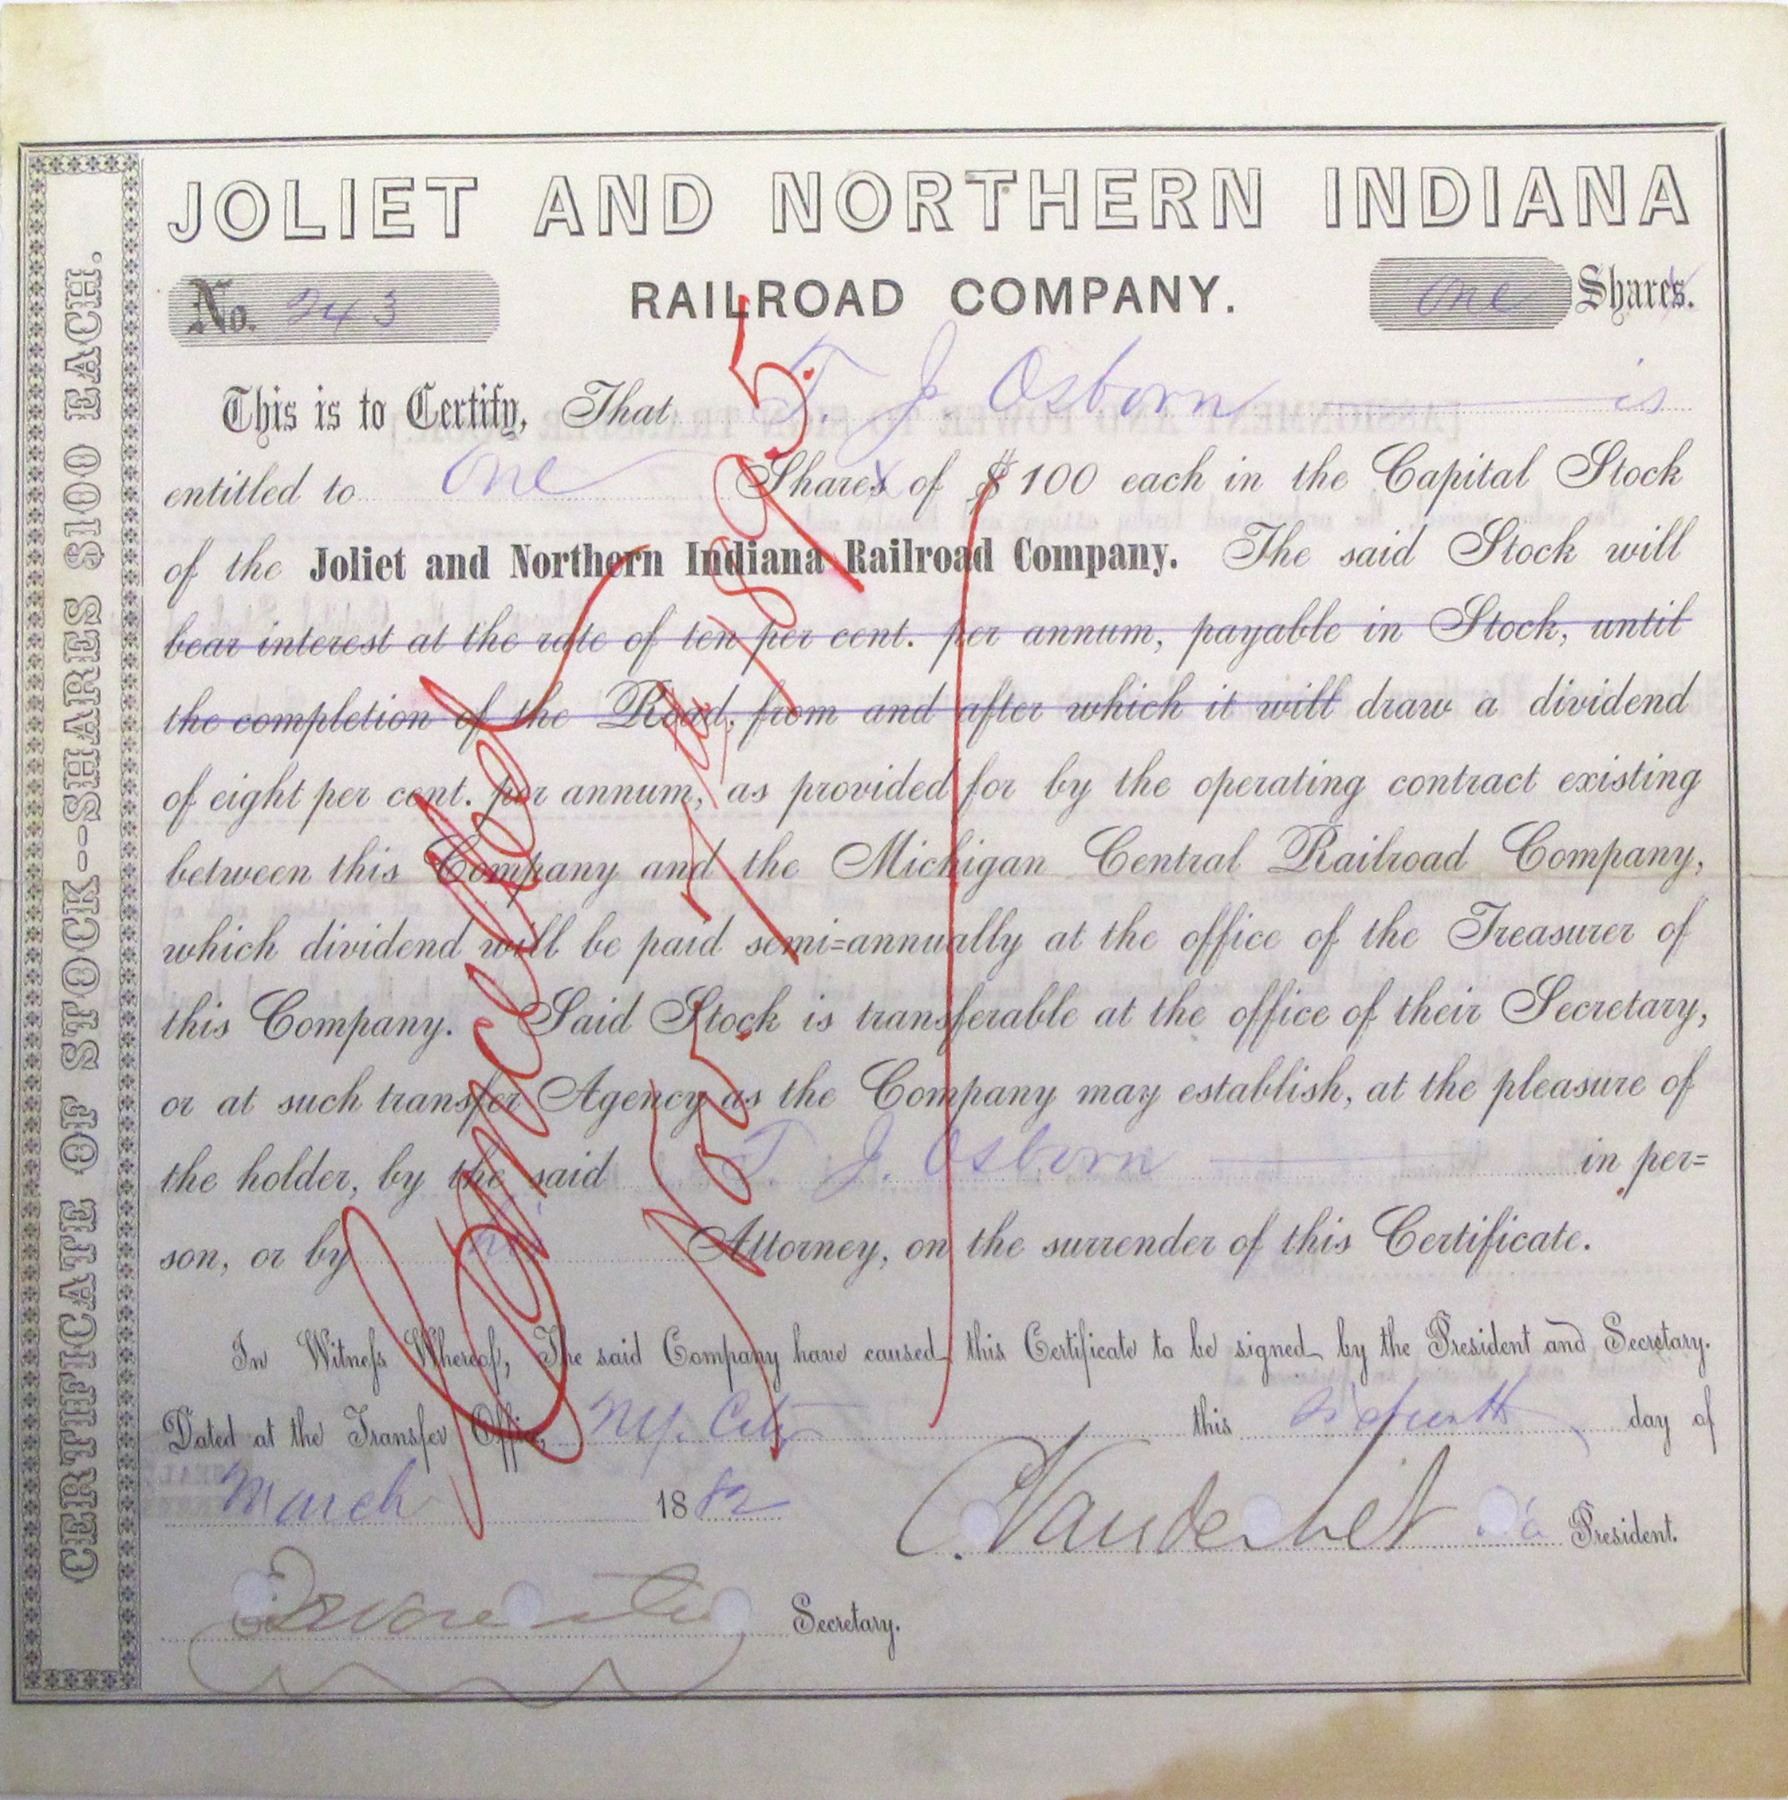 JOLIET AND NORTHERN INDIANA
No. 243 RAILROAD COMPANY. One Shares.
This is to Certify, That T. J. Osborn is
entitled to One Shares of $100 each in the Capital Stock
of the Joliet and Northern Indiana Railroad Company. The said Stock will
bear interest at the rate of ten per cent. per annum, payable in Stock, until
the completion of the Road, from and after which it will draw a dividend
of eight per cent. per annum, as provided for by the operating contract existing
between this Company and the Michigan Central Railroad Company,
which dividend will be paid semi-annually at the office of the Treasurer of
this Company. Said Stock is transferable at the office of their Secretary,
or at such transfer Agency as the Company may establish, at the pleasure of
the holder, by the said T. J. Osborn in per=
son, or by his Attorney, on the surrender of this Certificate.
In Witness Whereof, The said Company have caused this Certificate to be signed by the President and Secretary.
Dated at the Transfer Office, N.Y. City this Sixteenth day of
March 1882
C. Vanderbilt President.
Secretary.
CERTIFICATE OF STOCK--SHARES $100 EACH.
Cancelled
1895.